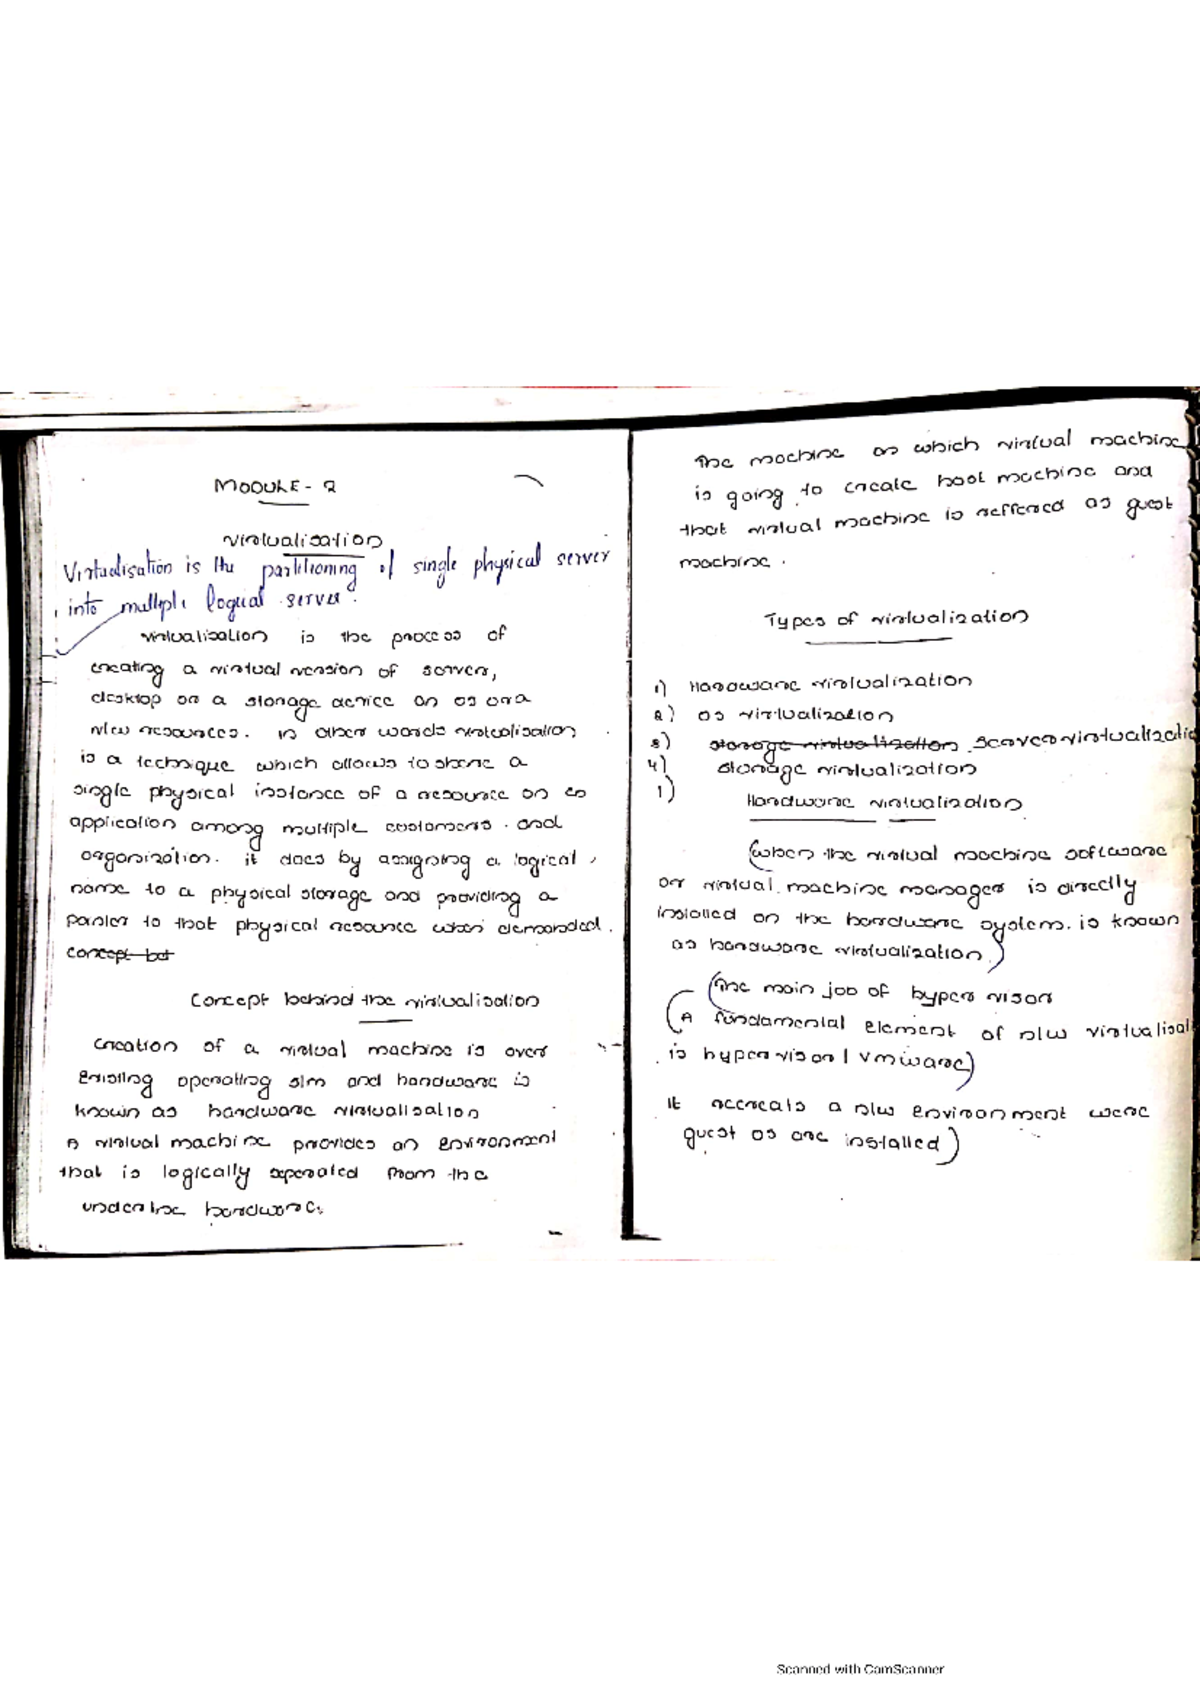 MODULE - 2
virtualisation
Virtualisation is the partitioning of single physical server
into multiple logical server.
virtualisation is the process of
creating a virtual version of server,
desktop or a storage device an os or a
new resources. in other words virtualisation
is a technique which allows to share a
single physical instance of a resource or an
application among multiple customers. and
organization. it does by assigning a logical
name to a physical storage and providing a
pointer to that physical resource when demanded.
concept bet
Concept behind the virtualisation
Creation of a virtual machine is over
existing operating s/m and hardware is
known as hardware virtualisation
A virtual machine provides an environment
that is logically seperated from the
underline hardware.
The machine on which virtual machine
is going to create host machine and
that virtual machine is reffered as guest
machine.
Types of virtualization
1) Hardware virtualization
2) os virtualization
3) storage virtualization server virtualizatio
4) storage virtualization
1) Hardware virtualization
(when the virtual machine software
or virtual machine manager is directly
installed on the hardware system. is known
as hardware virtualization.)
(The main job of hyper visor
(A fundamental element of new virtualisat
is hyper visor / vmware)
It recreats a new environment were
guest os are installed)
Scanned with CamScanner